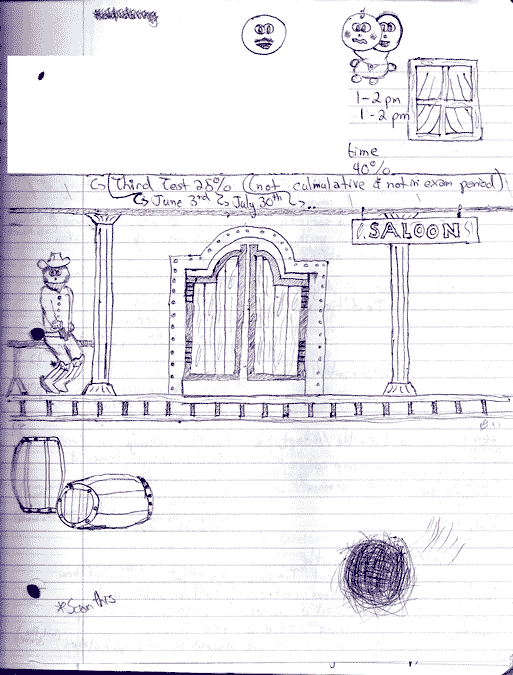 1-2 pm
1-2 pm
time
40%
↳ Third Test 25% (not culmulative & not in exam period)
↳ June 3rd ↳ July 30th ↳
SALOON
*Scan this